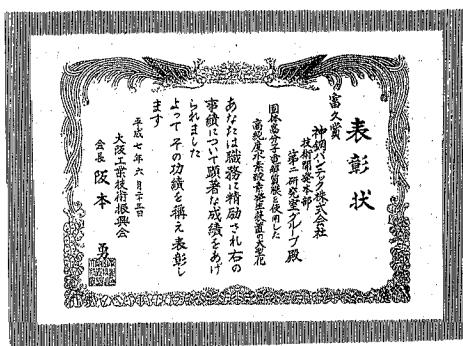 表彰状
富久賞
神鋼パンテック株式会社
技術開発本部
第二研究室グループ殿
固体高分子電解質膜を使用した
高純度水素酸素発生装置の大型化
あなたは職務に精励され右の
事績について顕著な成績をあげ
られました
よって その功績を称え表彰し
ます
平成七年六月二十三日
大阪工業技術振興会
会長 阪本 勇